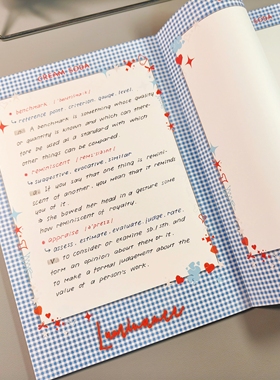 CREAM SODA
• benchmark /ˈbentʃmɑːk/
↳ reference point, criterion, gauge, level
A benchmark is something whose quality
or quantity is known and which can there-
fore be used as a standard with which
other things can be compared
• reminiscent /ˌremɪˈnɪsnt/
↳ suggestive, evocative, similar
If you say that one thing is remini-
scent of another, you mean that it reminds
you of it.
◦ She bowed her head in a gesture some
how reminiscent of royalty.
• appraise /əˈpreɪz/
↳ assess, estimate, evaluate, judge, rate,
to consider or examine sb / sth and
form an opinion about them or it.
to make a formal judgement about the
value of a person's work.